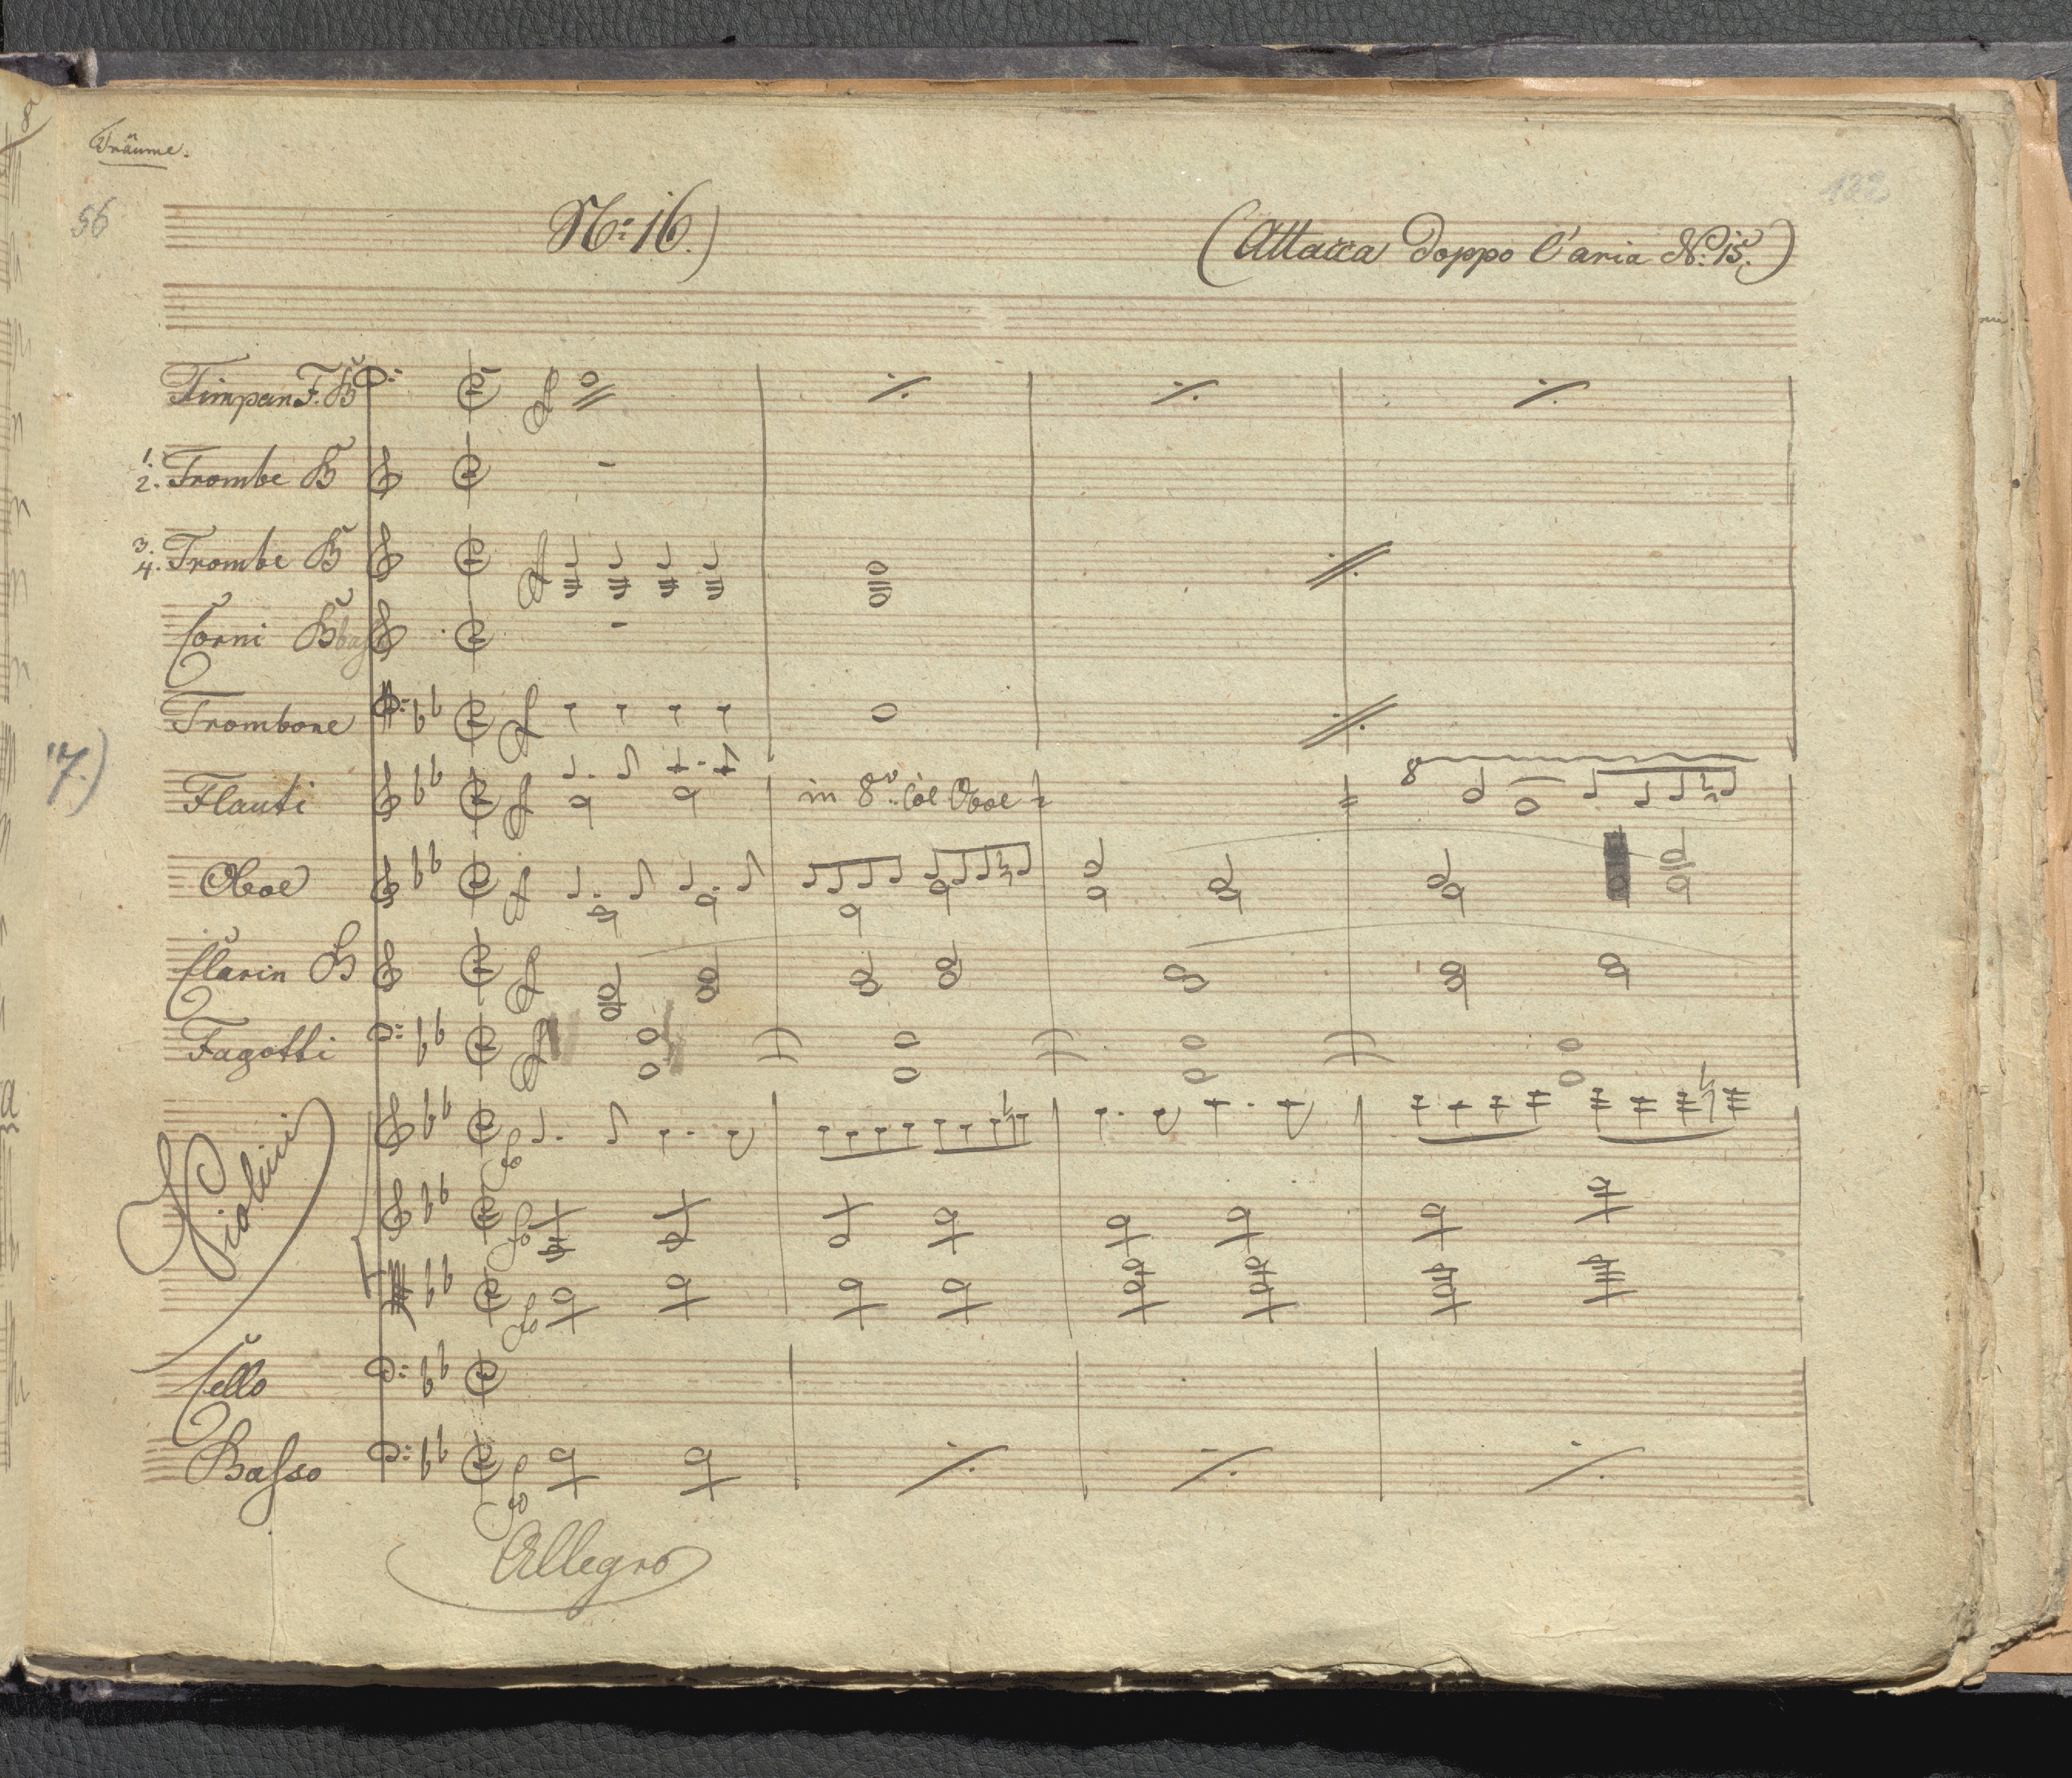 Träume.
56
No: 16.)
(Attacca doppo l'aria No: 15.)
Timpan F. B
1.
2. Trombe B
3.
4. Trombe B
Corni B bass
Trombone
17.)
Flauti
in 8va col Oboe
8
Oboe
Clarin B
Fagotti
Violini
fo
fo
fo
Cello
Basso
fo
Allegro